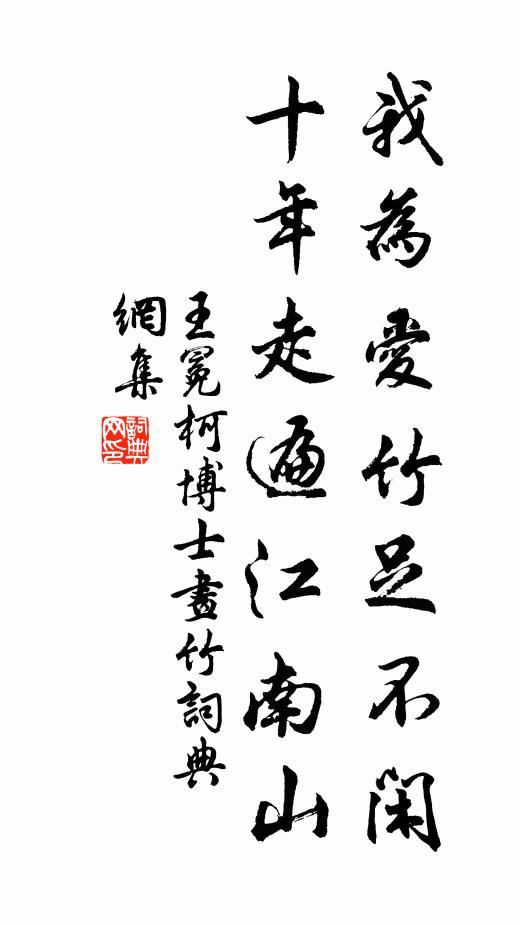 我為愛竹足不閑
十年走遍江南山
王冕柯博士畫竹詞典
網集
詞典
网印